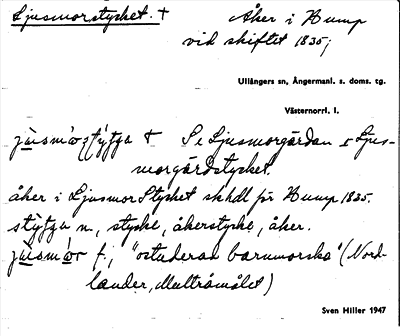 Ljusmorstycket. + Åker i Hump
vid skiftet 1835;
Ullångers sn, Ångermanl. s. doms. tg.
Västernorrl. l.
+ Se Ljusmorgårdan o Ljus-
morgårdstycket.
åker i LjusmorStycket skhdl för Hump 1835.
n., stycke, åkerstycke, åker.
f., "ostuderad barnmorska" (Nord-
lander, Multråmålet)
Sven Hiller 1947